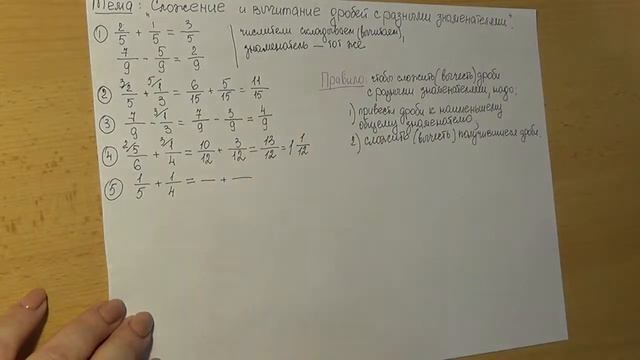 Тема: "Сложение и вычитание дробей с разными знаменателями".
① 2/5 + 1/5 = 3/5
7/9 - 5/9 = 2/9
числители складываем (вычитаем),
знаменатель — тот же
② ³⁾2/5 + ⁵⁾1/3 = 6/15 + 5/15 = 11/15
③ 7/9 - ³⁾1/3 = 7/9 - 3/9 = 4/9
④ ²⁾5/6 + ³⁾1/4 = 10/12 + 3/12 = 13/12 = 1 1/12
⑤ 1/5 + 1/4 = — + —
Правило: чтобы сложить (вычесть) дроби
с разными знаменателями, надо:
1) привести дроби к наименьшему
общему знаменателю;
2) сложить (вычесть) получившиеся дроби.